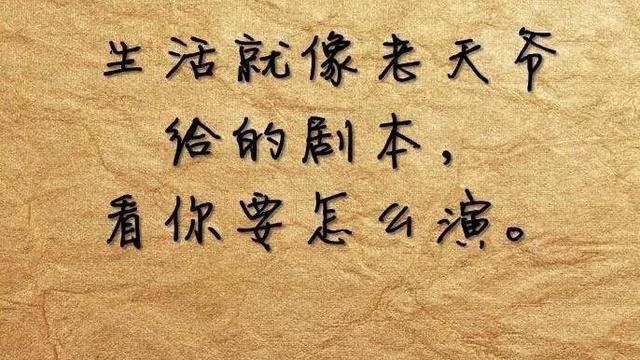 生活就像老天爷
给的剧本，
看你要怎么演。